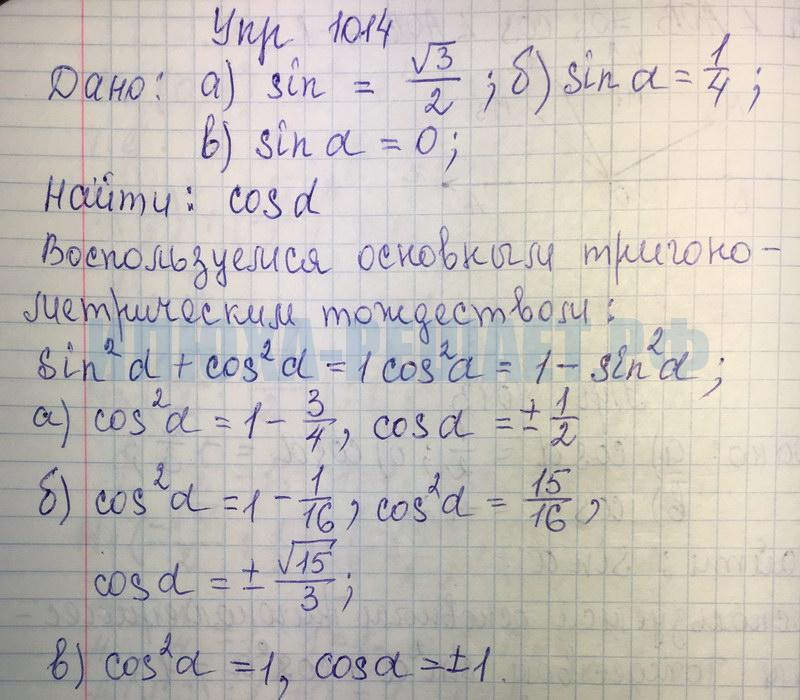 Упр 1014
Дано: а) sin = √3/2; б) sin α = 1/4;
в) sin α = 0;
Найти: cos α
Воспользуемся основным тригоно-
метрическим тождеством:
ИЛЮХА-РЕШАЕТ.РФ
sin²α + cos²α = 1 cos²α = 1 - sin²α;
а) cos²α = 1 - 3/4, cos α = ± 1/2
б) cos²α = 1 - 1/16, cos²α = 15/16,
cos α = ± √15/3;
в) cos²α = 1, cos α = ±1.